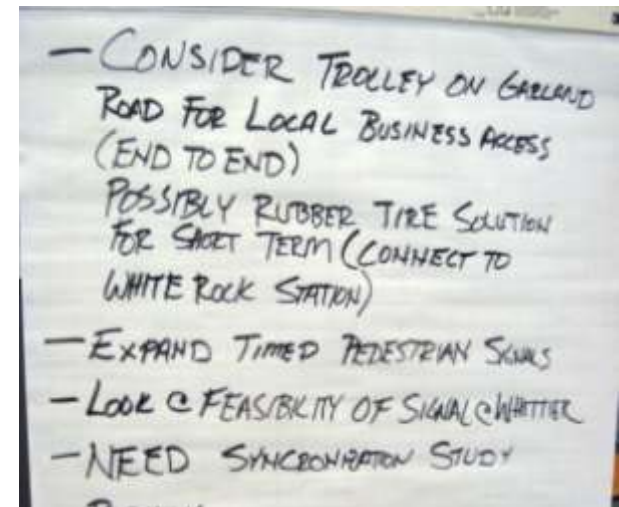 — CONSIDER TROLLEY ON GARLAND
ROAD FOR LOCAL BUSINESS ACCESS
(END TO END)
POSSIBLY RUBBER TIRE SOLUTION
FOR SHORT TERM (CONNECT TO
WHITE ROCK STATION)
— EXPAND TIMED PEDESTRIAN SIGNALS
— LOOK @ FEASIBILITY OF SIGNAL @ WHITTIER
— NEED SYNCRONIZATION STUDY